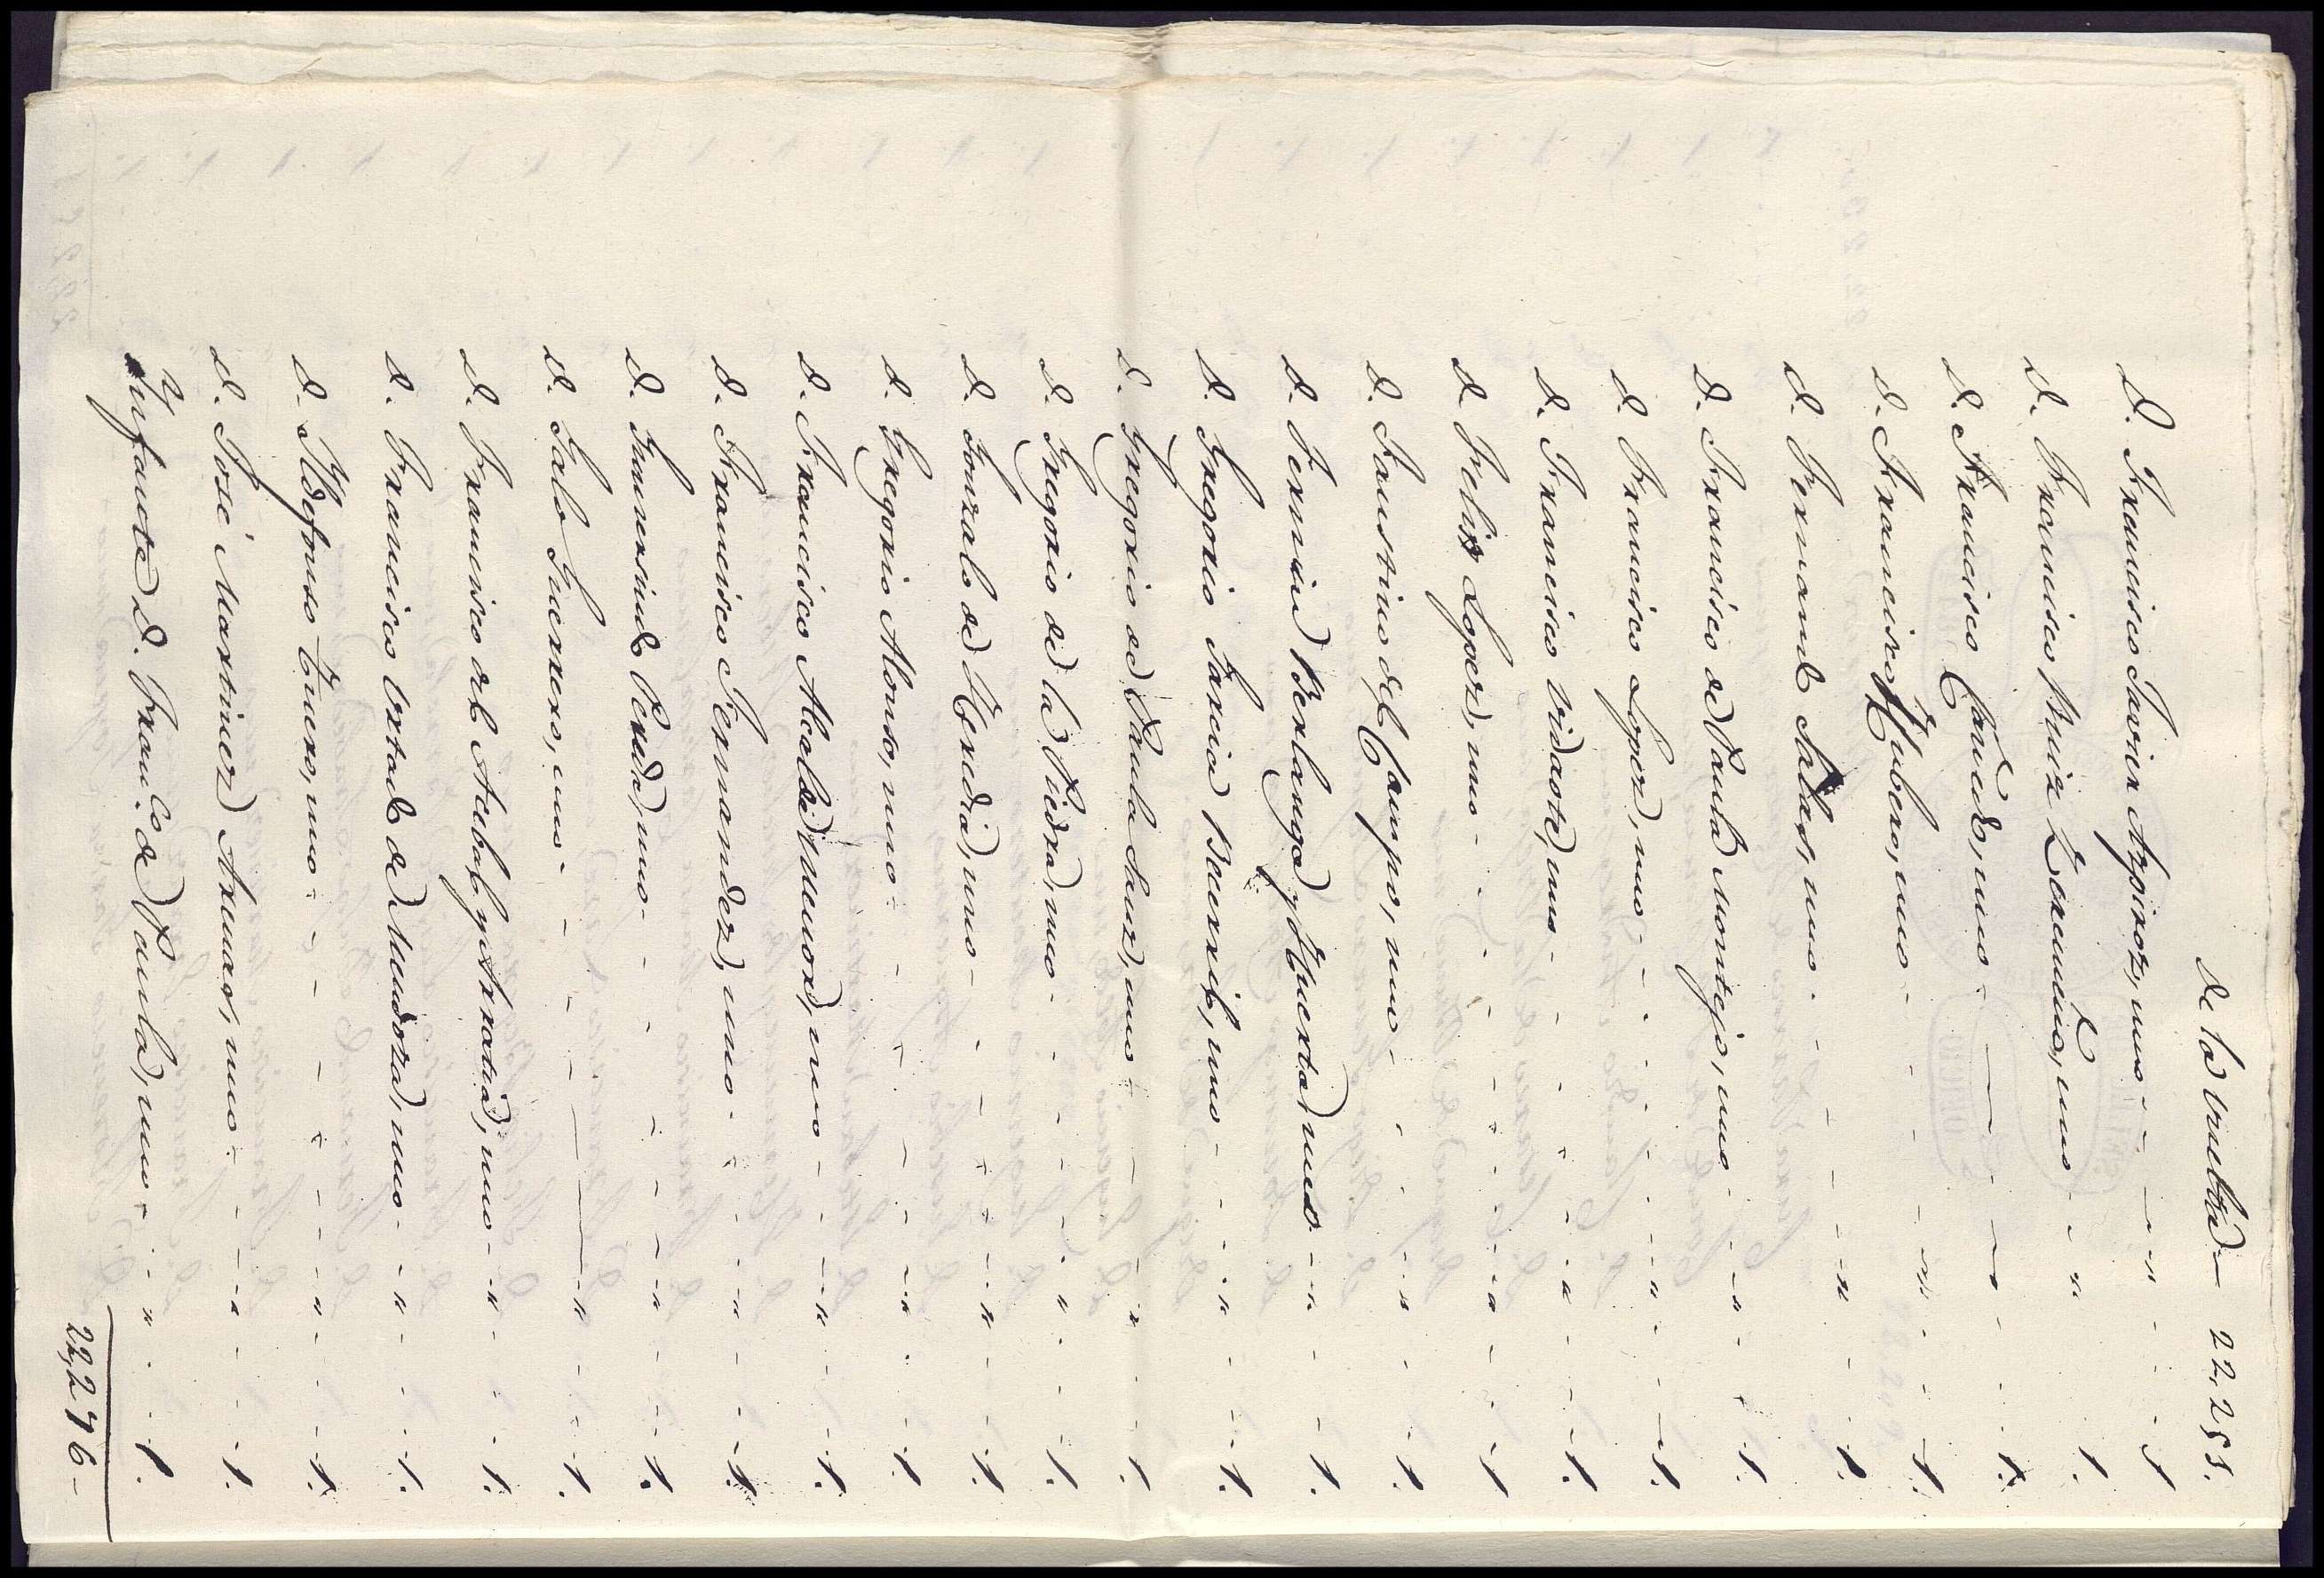 De la vuelta — 22,255.
D. Francisco Javier Azpiroz, uno - - 1
D. Francisco Ruiz Zorzudo, uno - - 1.
D. Francisco Criado, uno - - 1.
D. Francisco Yubero, uno - - 1.
D. Fernando Salas, uno - - 1.
D. Francisco de Paula Montejo, uno - - 1.
D. Francisco Lopez, uno - - 1.
D. Francisco Vidaote, uno - - 1.
D Felix Lopez, uno - - 1
D. Faustino del Campo, uno - - 1.
D. Fermin Berlanga y Huerta uno - - 1.
D. Gregorio Garcia Barril, uno - - 1.
D. Gregorio de Paula Sanz, uno - - 1.
D. Gregorio de la Piedra, uno - - 1.
D. Gonzalo de Heredia, uno - - 1.
D. Gregorio Alonso, uno - - 1
D. Francisco Alcalde Menor, uno - - 1.
D. Francisco Fernandez, uno - - 1.
D. Gumersindo Pereda, uno - - 1.
D. Galo Guerrero, uno - - 1.
D. Francisco del Acebal y Arratia, uno - - 1.
D. Francisco Hurtado de Mendoza, uno - - 1.
D. Ildefonso Tuero, uno - - 1.
D. José Martinez Arenas, uno - - 1.
Infante D. Fran.co de Paula, uno - - 1.
22,276 -